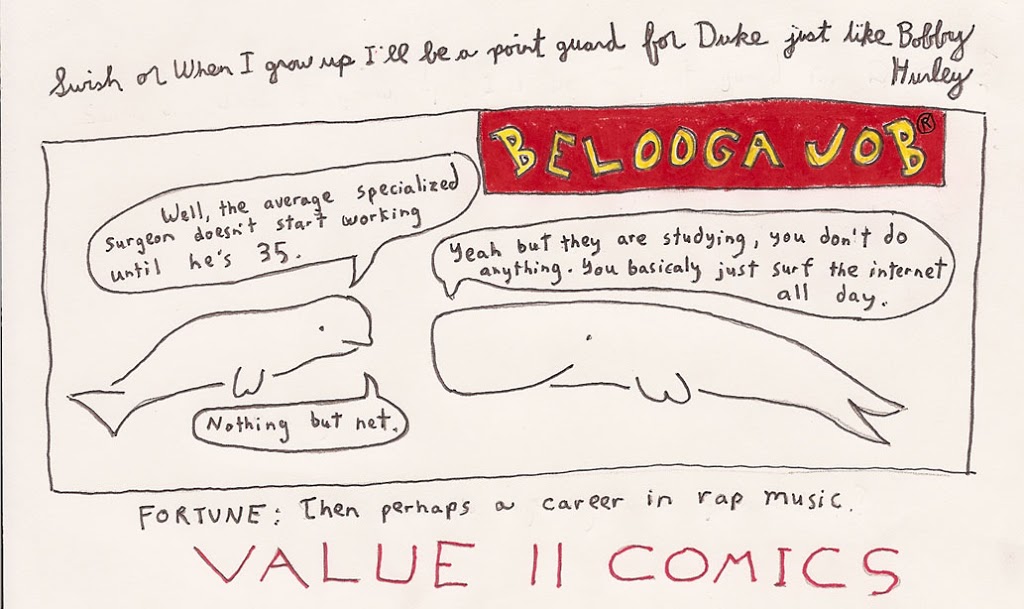 Swish or When I grow up I'll be a point guard for Duke just like Bobby
Hurley
BELOOGA JOB®
Well, the average specialized
surgeon doesn't start working
until he's 35.
Yeah but they are studying, you don't do
anything. You basicaly just surf the internet
all day.
Nothing but net.
FORTUNE: Then perhaps a career in rap music.
VALUE 11 COMICS